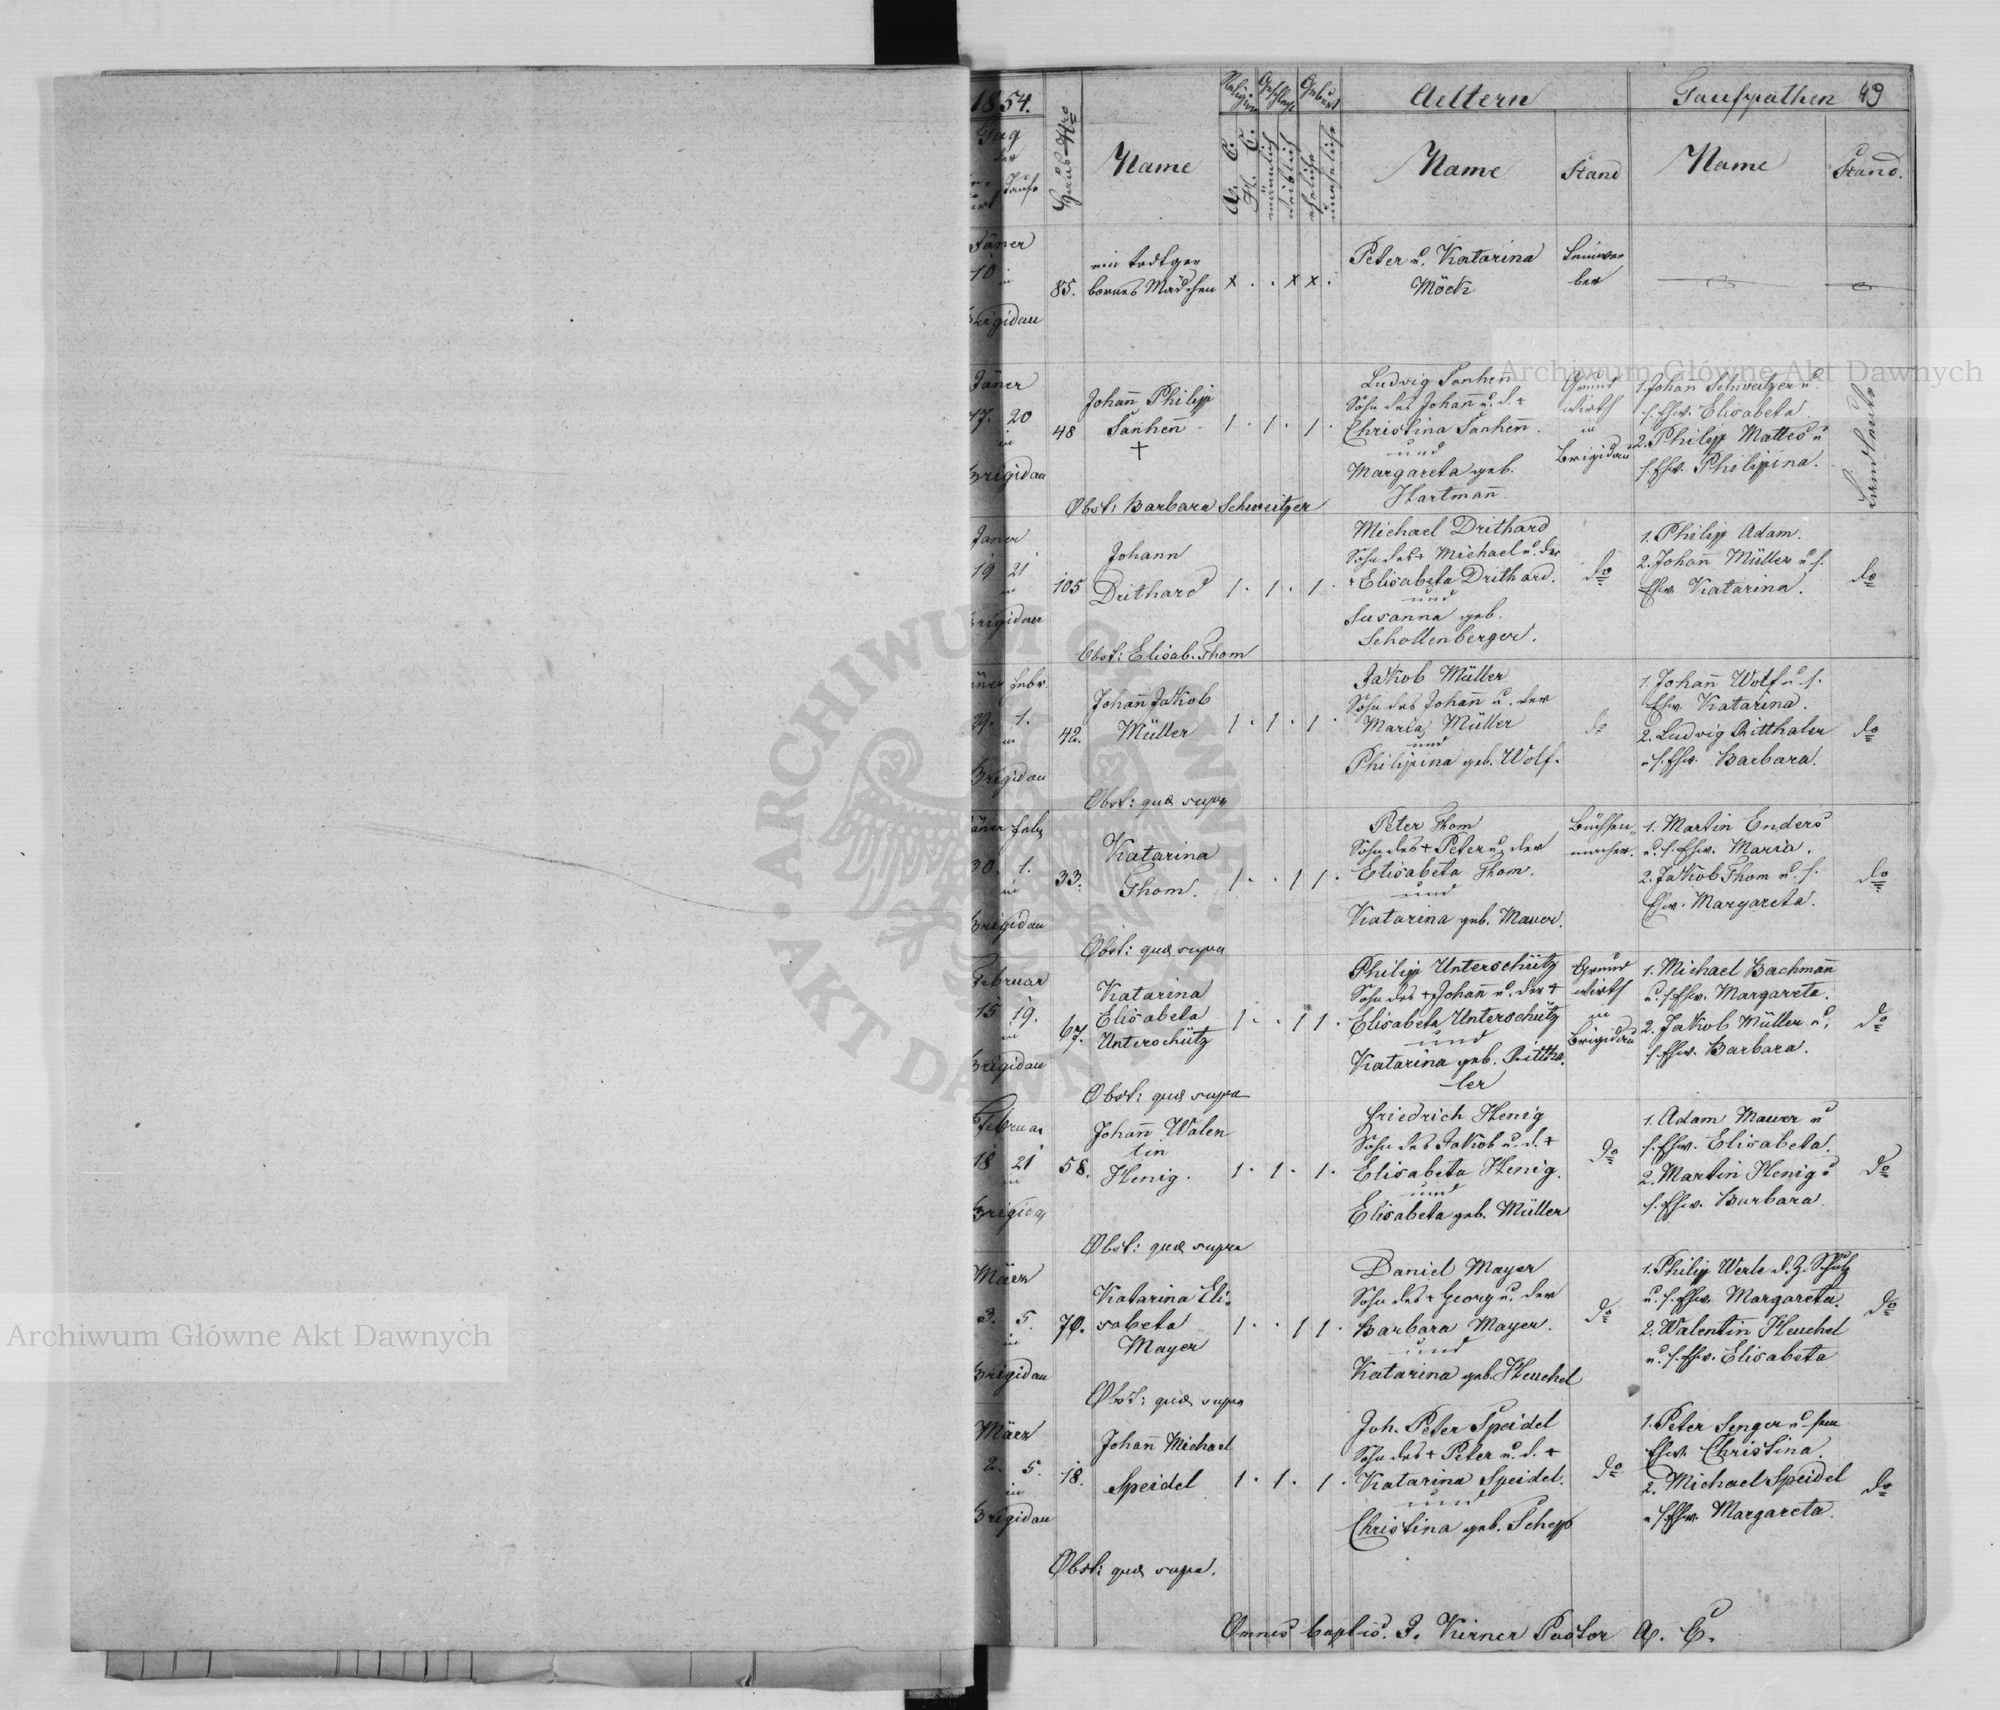 1854.
Tag
der
Taufe
Haus Nro
Name
Religion
A. C.
H. C.
Geschlecht
männlich
weiblich
Geburt
eheliche
uneheliche
Aeltern
Name
Stand
Taufpathen 49
Name
Stand.
Jäner
10
in
Brigidau
85.
ein todtge
bornes Mädchen
x . . x x .
Peter u. Katarina
Möck
Leinwe
ber
Jäner
17. 20
in
Brigidau
48
Johañ Philipp
Sanheñ
†
1 . 1 . 1 .
Ludwig Sanheñ
Sohn des Johañ u. d. +
Christina Sanheñ.
und
Margareta geb.
Hartmañ.
Grund
wirth
in
Brigidau
1. Johan Schweitzer u.
s. Ehw. Elisabeta.
2. Philipp Mattes u
s. Ehw. Philippina.
Landleute
Obst: Barbara Schweitzer
Janer
19 21
in
Brigidau
105
Johann
Drithard
1 . 1 . 1 .
Michael Drithard
Sohn des + Michael u. der
+ Elisabeta Drithard.
und
Susanna geb.
Schollenberger.
do
1. Philipp Adam.
2. Johañ Müller u. s.
Ehw. Katarina.
do
Obst: Elisab. Thom
Jäner Febr.
29. 1.
in
Brigidau
42.
Johañ Jakob
Müller
1 . 1 . 1 .
Jakob Müller
Sohn des Johañ u. der
Maria Müller
und
Philipina geb. Wolf.
do
1. Johañ Wolf u. s.
Ehw. Katarina.
2. Ludwig Ritthaler
u. s. Ehw. Barbara.
do
Obst: quæ supra
Jäner Feb
30. 1.
in
Brigidau
33.
Katarina
Thom.
1 . . 1 1 .
Peter Thom
Sohn des + Peter u. der
Elisabeta Thom.
und
Katarina geb. Mauer.
Büchsen„
macher.
1. Martin Enders
u. s. Ehw. Maria.
2. Jakob Thom u. s.
Ehw. Margareta.
do
Obst: quæ supra
Februar
15 19.
in
Brigidau
67.
Katarina
Elisabeta
Unterschütz
1 . . 1 1 .
Philipp Unterschütz
Sohn des + Johañ u. der +
Elisabeta Unterschütz
und
Katarina geb. Rittha
ler
Grund
wirth
in
Brigidau
1. Michael Bachmañ
u. s. Ehw. Margareta.
2. Jakob Müller u.
s. Ehw. Barbara.
do
Obst: quæ supra
Februar
18 21
in
58.
Johañ Walen
tin
Henig.
1 . 1 . 1 .
Friedrich Henig
Sohn des Jakob u. d. +
Elisabeta Henig.
und
Elisabeta geb. Müller
do
1. Adam Mauer u
s. Ehw. Elisabeta.
2. Martin Henig u
s. Ehw. Barbara.
do
Obst: quæ supra
März
3. 5.
in
Brigidau
70.
Katarina Eli„
sabeta
Mayer
1 . . 1 1 .
Daniel Mayer
Sohn des + Georg u. der
Barbara Mayer.
und
Katarina geb. Heuchel
do
1. Philipp Werle d. Z. Schulz
u. s. Ehw. Margareta.
2. Walentin Heuchel
u. s. Ehw. Elisabeta
do
Obst: quæ supra
März
2. 5.
in
Brigidau
18.
Johañ Michael
Speidel
1 . 1 . 1 .
Joh. Peter Speidel
Sohn des + Peter u. d. +
Katarina Speidel.
und
Christina geb. Schepp
do
1. Peter Senger u.
Ehw. Christina.
2. Michael Speidel
u. s. Ehw. Margareta.
do
Obst: quæ supra.
Omnes baptis. J. Kirner Pastor A. C.
Archiwum Główne Akt Dawnych
Archiwum Główne Akt Dawnych
ARCHIWUM GŁÓWNE AKT DAWNYCH